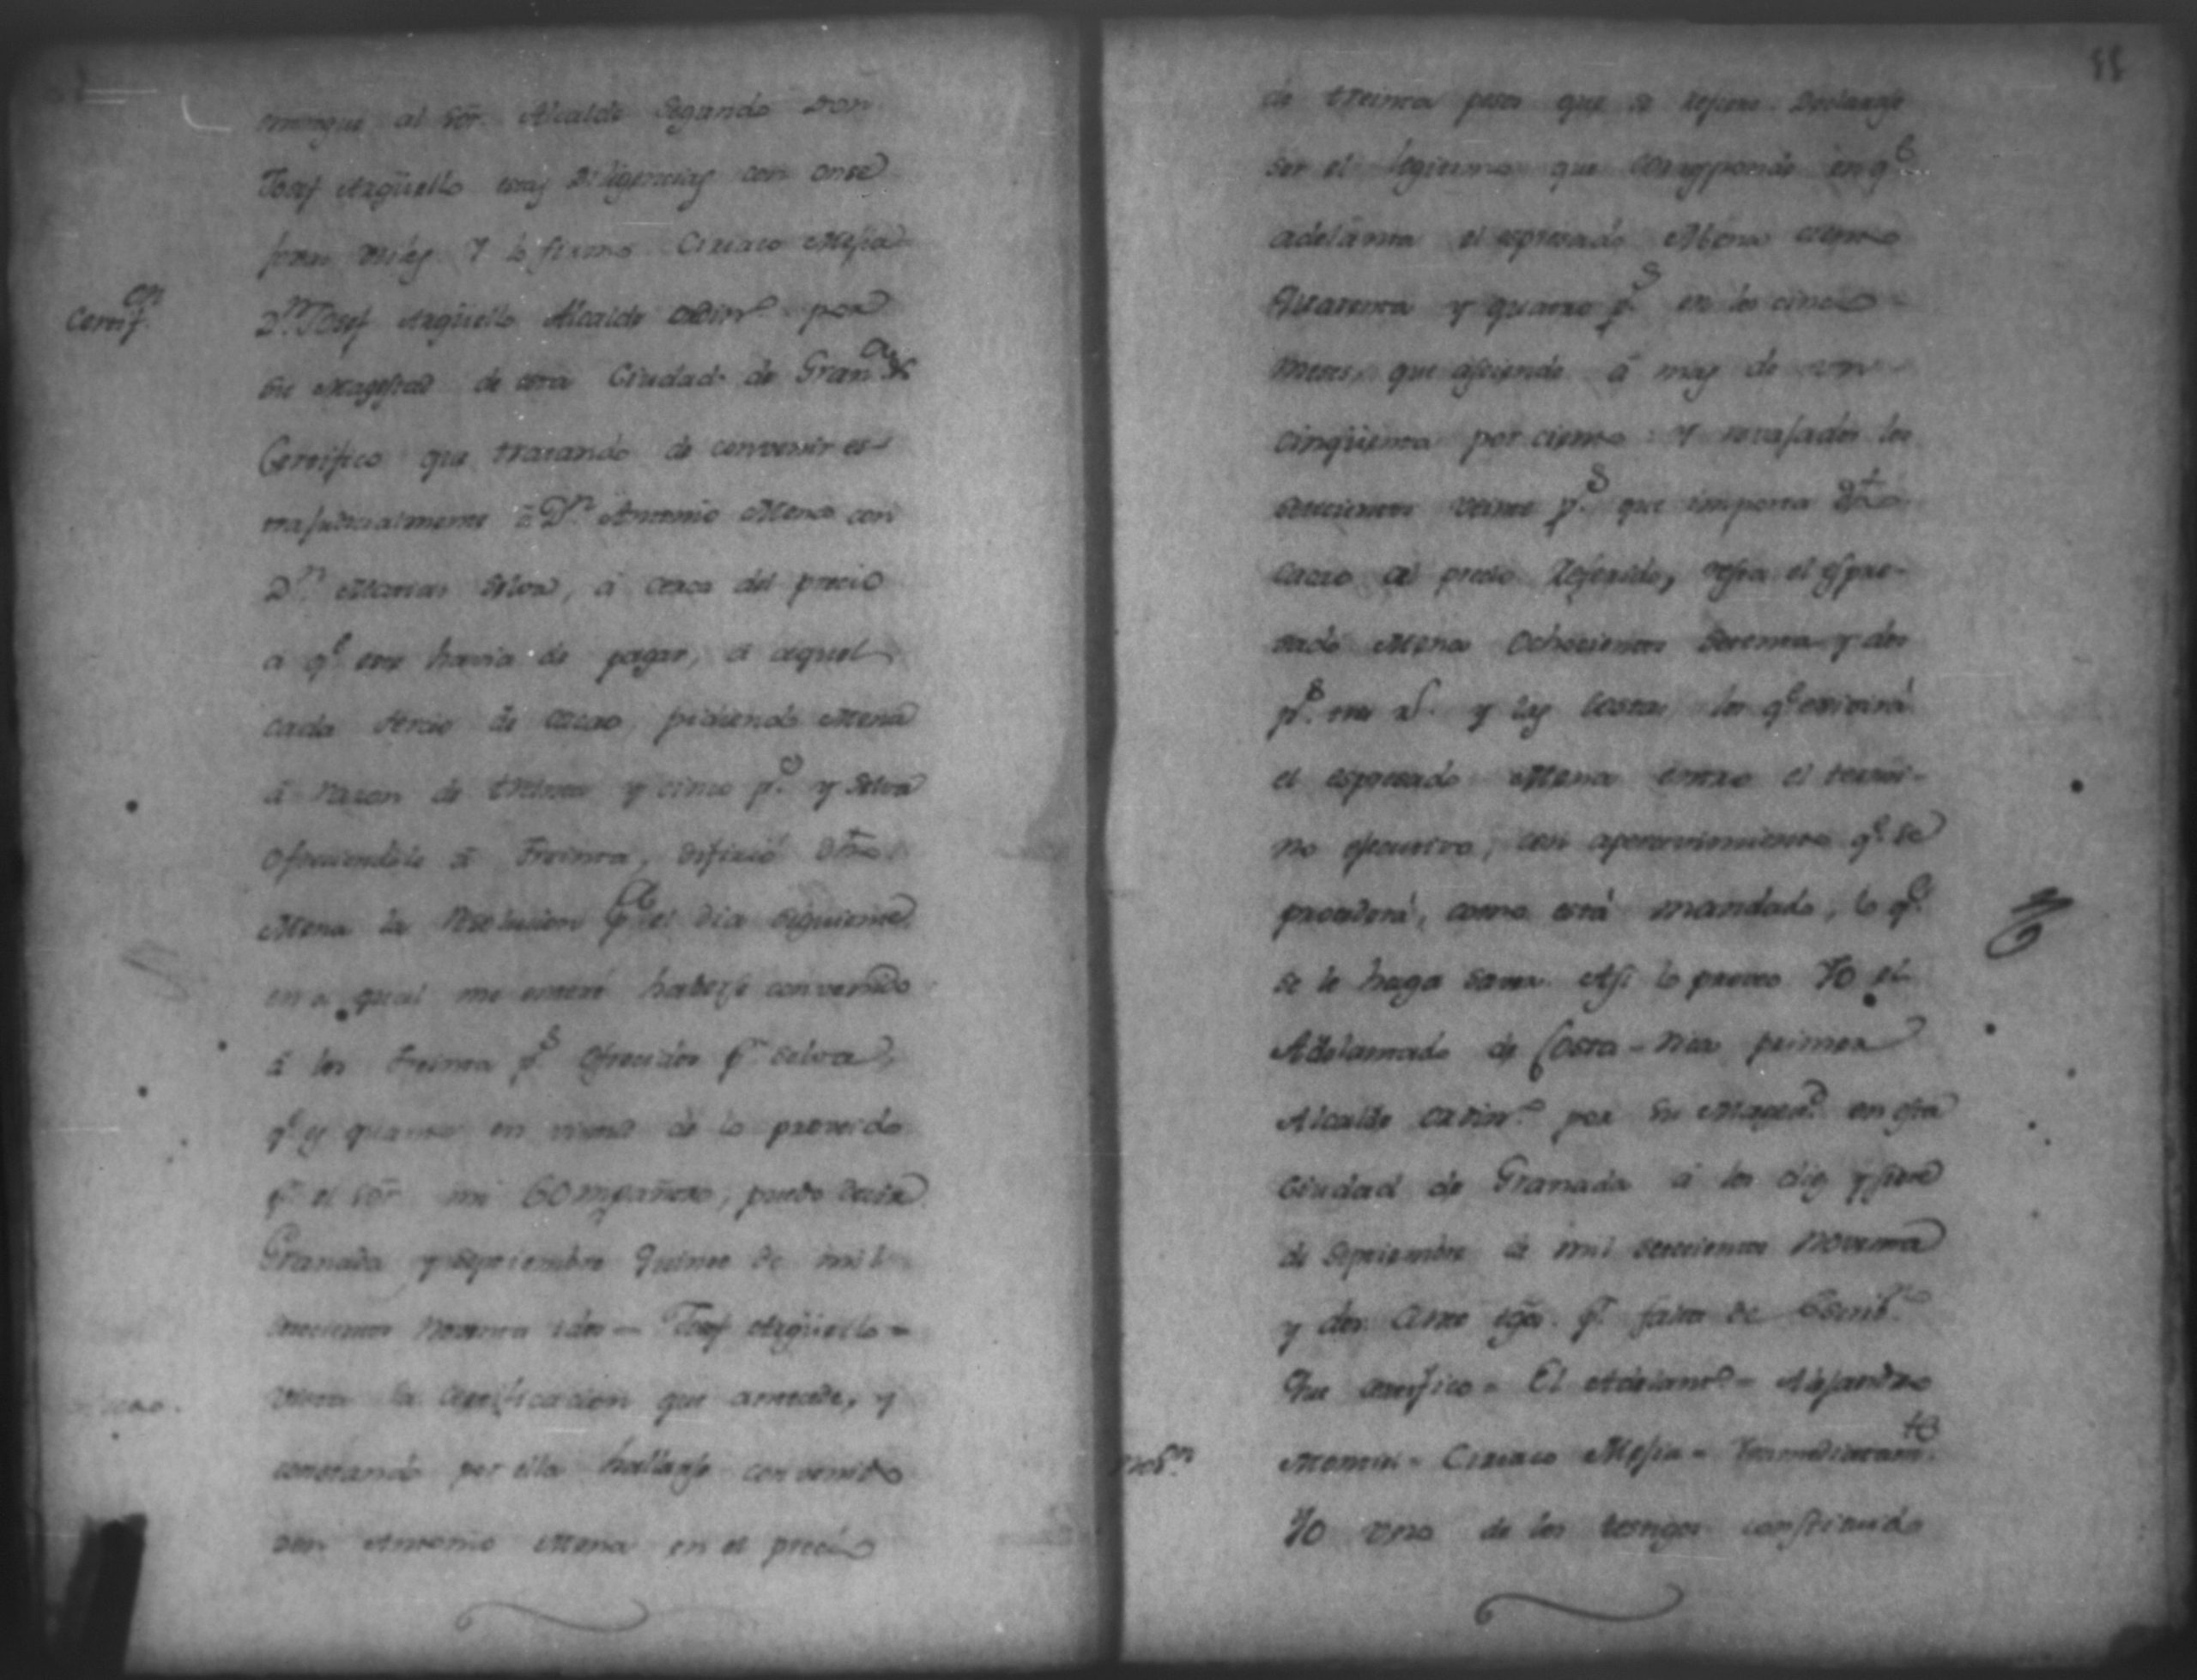 entregue al Sõr. Alcalde Segundo Don
Josef Argüello estas Diligencias con onse
foxas utiles Y lo firmo Ciriaco Mesia
Certif.on
Dn. Josef Argüello Alcalde ordino. por
Su Magestad de esta Ciudad de Grana. &
Certifico que tratando de convenir es-
trajudicialmente â Dn. Antonio Mena con
Dn. Matias Selva, á cerca del precio
a qe. este havia de pagar, á aquel
cada tercio de cacao, pidiendo Mena
â razon de treinta y cinco ps. y Selva
ofreciendole â Treinta, difirió dho
Mena la resolucion pa. el dia siguiente
en el qual me enteré haberse convenido
â los treinta ps. ofrecidos pr. Selva,
qe. es quanto en virtud de lo proveido
pr. el Sõr. mi Compañero, puedo decir
Granada y Septiembre Quince de mil
setecientos noventa y dos = Josef Argüello =
Vista la Certificacion que antecede, y
constando por ella hallarse convenido
Don Antonio Mena en el precio
55
de treinta pesos que se refiere. Declarase
ser el legitimo que corresponde en qe.
adelanta el espresado Mena ciento
Quarenta y quatro ps. en los cinco
meses, que asciende â mas de un
cinqüenta por ciento: Y revajados los
setecientos veinte ps. que importa dho
cacao al precio referido, resta el espre-
sado Mena Ochocientos setenta y dos
ps. tres rs. y las costas los qe. exivirá
el espresado Mena dentro el termi-
no ejecutivo, con apercevimiento qe. se
procederá, como está mandado, lo qe.
se le haga saver. Asi lo proveo Yo el
Adelantado de Costa-rica primer
Alcalde ordino. por Su Magestd. en esta
Ciudad de Granada á los dies y siete
de Septiembre de mil setecientos noventa
y dos. Ante tgõs. pr. falta de Escribo.
Que certifico = El Adelantdo = Alejandro
Notn.
Ciriaco Mesia = Inmediatamte.
Yo uno de los testigos constituido